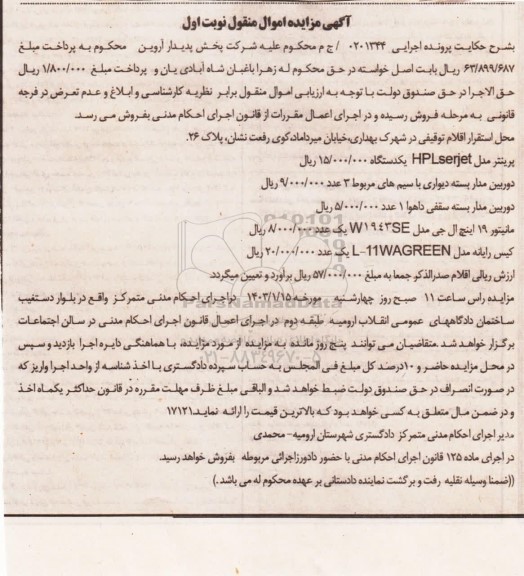 آگهی مزایده اموال منقول نوبت اول
بشرح حکایت پرونده اجرایی ۰۲۰۱۳۴۴ / ج م محکوم علیه شرکت پخش پدیدار آروین محکوم به پرداخت مبلغ
۶۳/۸۹۹/۶۸۷ ریال بابت اصل خواسته در حق محکوم له زهرا باغبان شاه آبادی یان و پرداخت مبلغ ۱/۸۰۰/۰۰۰ ریال
حق الاجرا در حق صندوق دولت با توجه به ارزیابی اموال منقول برابر نظریه کارشناسی و ابلاغ و عدم تعرض در فرجه
قانونی به مرحله فروش رسیده و در اجرای اعمال مقررات از قانون اجرای احکام مدنی بفروش می رسد.
محل استقرار اقلام توقیفی در شهرک بهداری،خیابان میرداماد،کوی رفعت نشان، پلاک ۲۶.
پرینتر مدل HPLserjet یکدستگاه ۱۵/۰۰۰/۰۰۰ ریال
دوربین مدار بسته دیواری با سیم های مربوط ۳ عدد ۹/۰۰۰/۰۰۰ ریال
دوربین مدار بسته سقفی داهوا ۱ عدد ۵/۰۰۰/۰۰۰ ریال
مانیتور ۱۹ اینچ ال جی مدل W۱۹٤۳SE یک عدد ۸/۰۰۰/۰۰۰ ریال
کیس رایانه مدل L-11WAGREEN یک عدد ۲۰/۰۰۰/۰۰۰ ریال
ارزش ریالی اقلام صدرالذکر جمعا به مبلغ ۵۷/۰۰۰/۰۰۰ ریال برآورد و تعیین میگردد.
مزایده راس ساعت ۱۱ صبح روز چهارشنبه مورخه ۱۴۰۳/۱/۱۵ دراجرای احکام مدنی متمرکز واقع در بلوار دستغیب
ساختمان دادگاههای عمومی انقلاب ارومیه طبقه دوم در اجرای اعمال قانون اجرای احکام مدنی در سالن اجتماعات
برگزار خواهد شد .متقاضیان می توانند پنج روز مانده به مزایده از مورد مزایده، با هماهنگی دایره اجرا بازدید و سپس
در محل مزایده حاضر و ۱۰درصد کل مبلغ فی المجلس به حساب سپرده دادگستری با اخذ شناسه از واحد اجرا واریز که
در صورت انصراف در حق صندوق دولت ضبط خواهد شد و الباقی مبلغ ظرف مهلت مقرره در قانون حداکثر یکماه اخذ
و در ضمن مال متعلق به کسی خواهد بود که بالاترین قیمت را ارائه نماید.۱۷۱۲۱
مدیر اجرای احکام مدنی متمرکز دادگستری شهرستان ارومیه- محمدی
در اجرای ماده ۱۲۵ قانون اجرای احکام مدنی با حضور دادورزاجرائی مربوطه بفروش خواهد رسید.
((ضمنا وسیله نقلیه رفت و برگشت نماینده دادستانی بر عهده محکوم له می باشد.)
۰۲۱-۸۸۳۴۹۶۷۰-۵